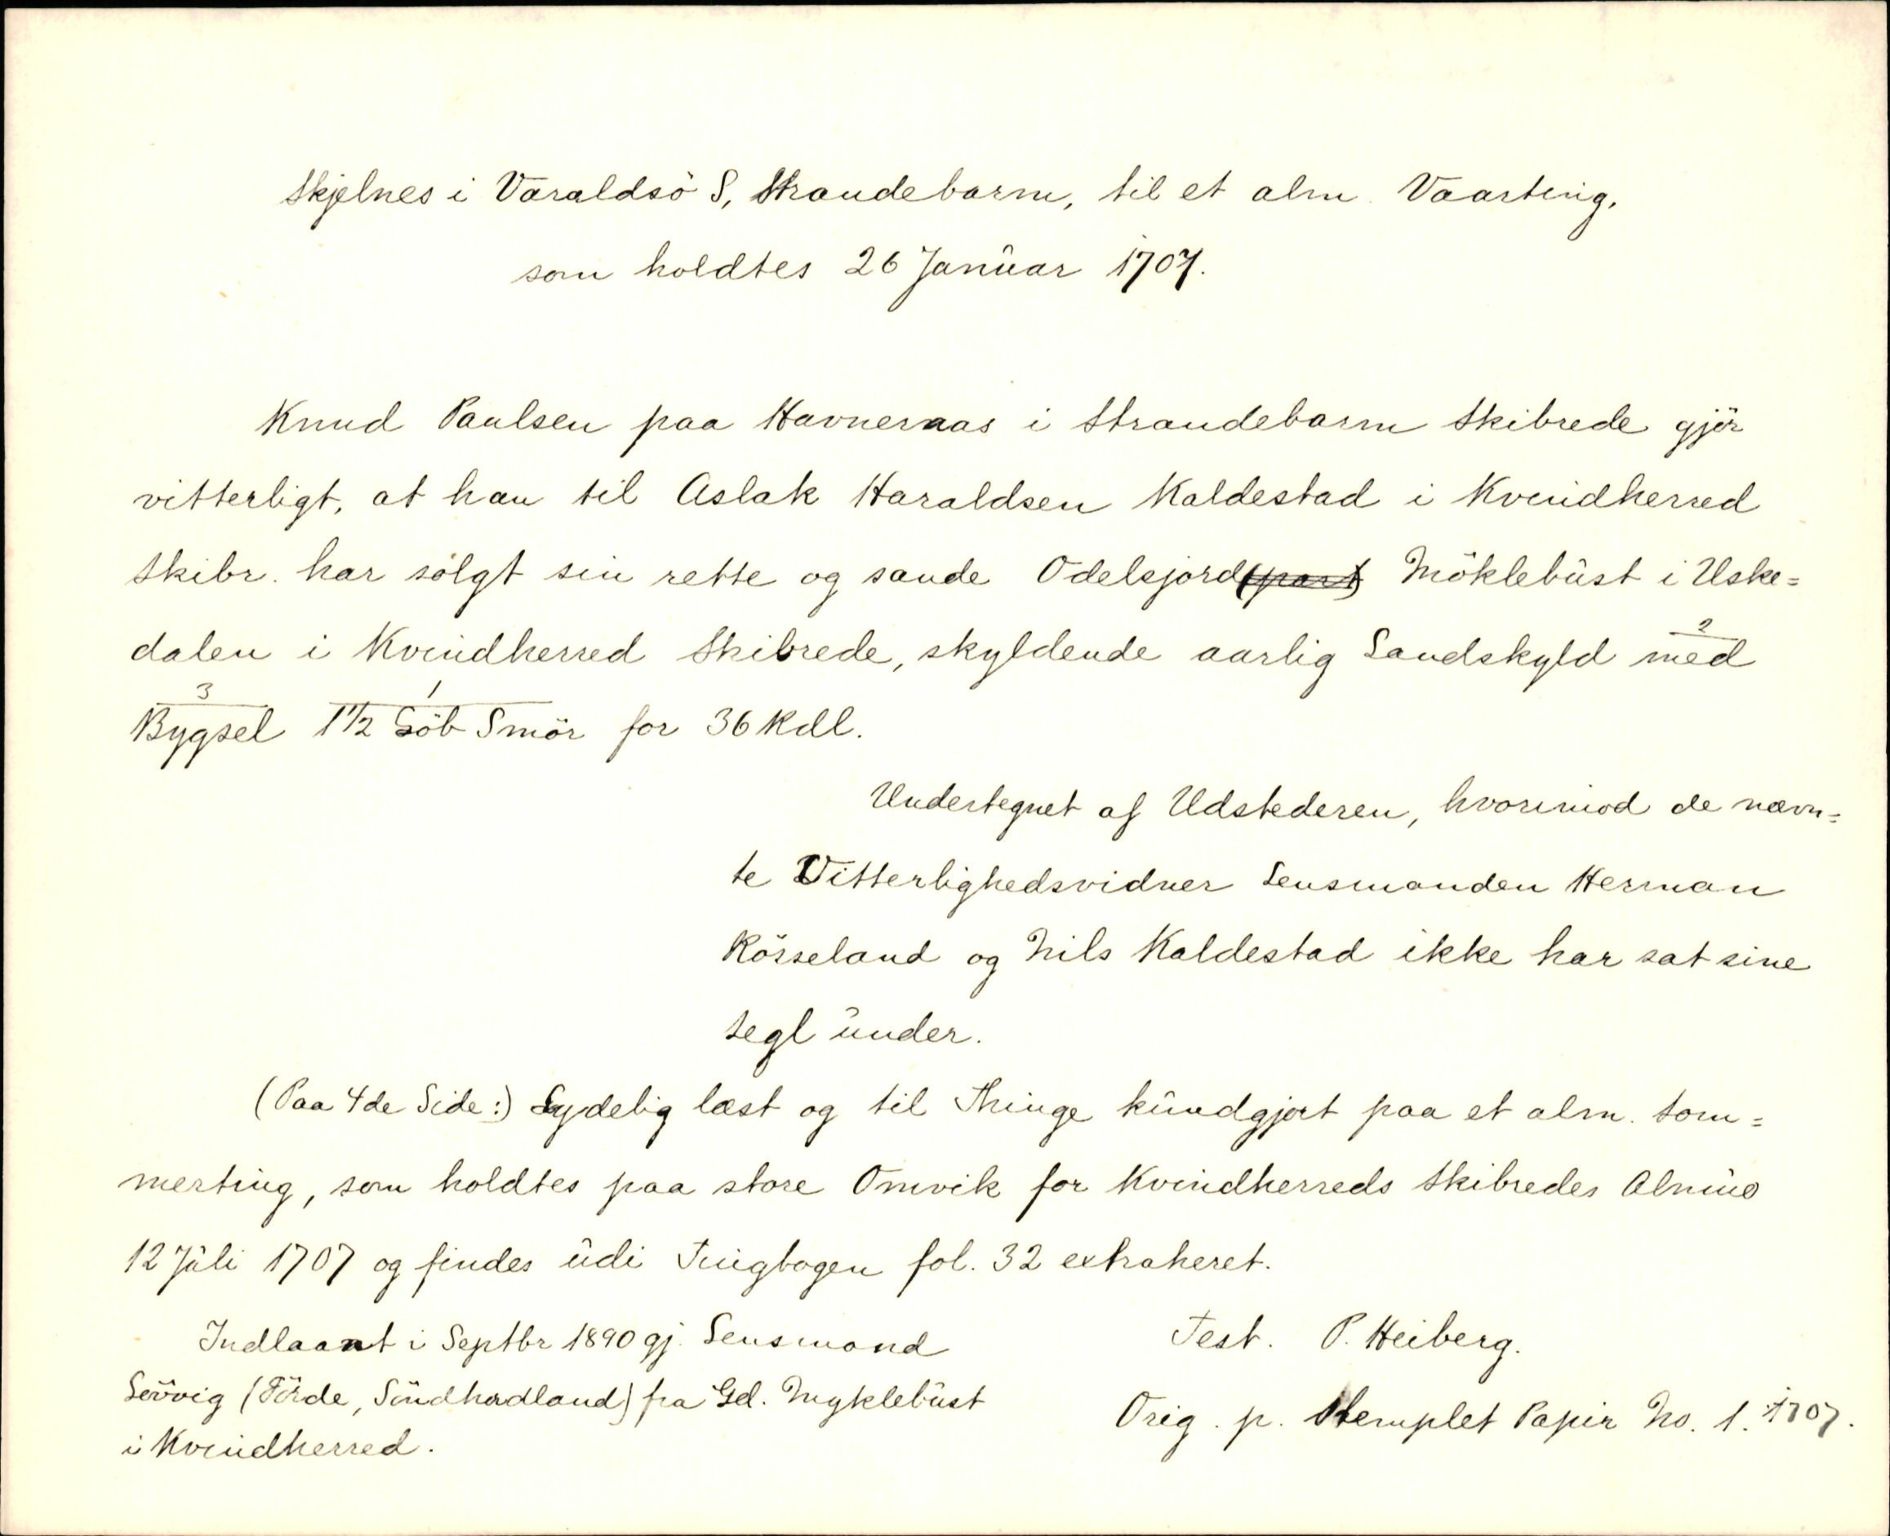 Skjelnes i Varaldsö S, Strandebarm, til et alm. Vaarting,
som holdtes 26 Januar 1707.
Knud Paulsen paa Havneraas i Strandebarm Skibrede gjör
vitterligt, at han til Aslak Haraldsen Kaldestad i Kvindherred
Skibr. har solgt sin rette og sande Odelsjord(part) Möklebust i Uske=
dalen i Kvindherred Skibrede, skyldende aarlig Landskyld med 2
3 1
Bygsel 1 1/2 Löb Smör for 36 Rdl.
Undertegnet af Udstederen, hvorimod de nævn=
te Vitterlighedsvidner Lensmanden Herman
Rörseland og Nils Kaldestad ikke har sat sine
Segl under.
(Paa 4de Side:) Lydelig læst og til Thinge kundgjort paa et alm. Som=
merting, som holdtes paa store Omvik for Kvindherreds Skibredes Almue
12 Juli 1707 og findes udi Tingbogen fol. 32 extraheret.
Test. P. Heiberg.
Indlaant i Septbr 1890 gj. Lensmand
Lövvig (Förde, Söndhordland) fra Gd. Myklebust
i Kvindherred.
Orig. p. Stemplet Papir No. 1. 1707.